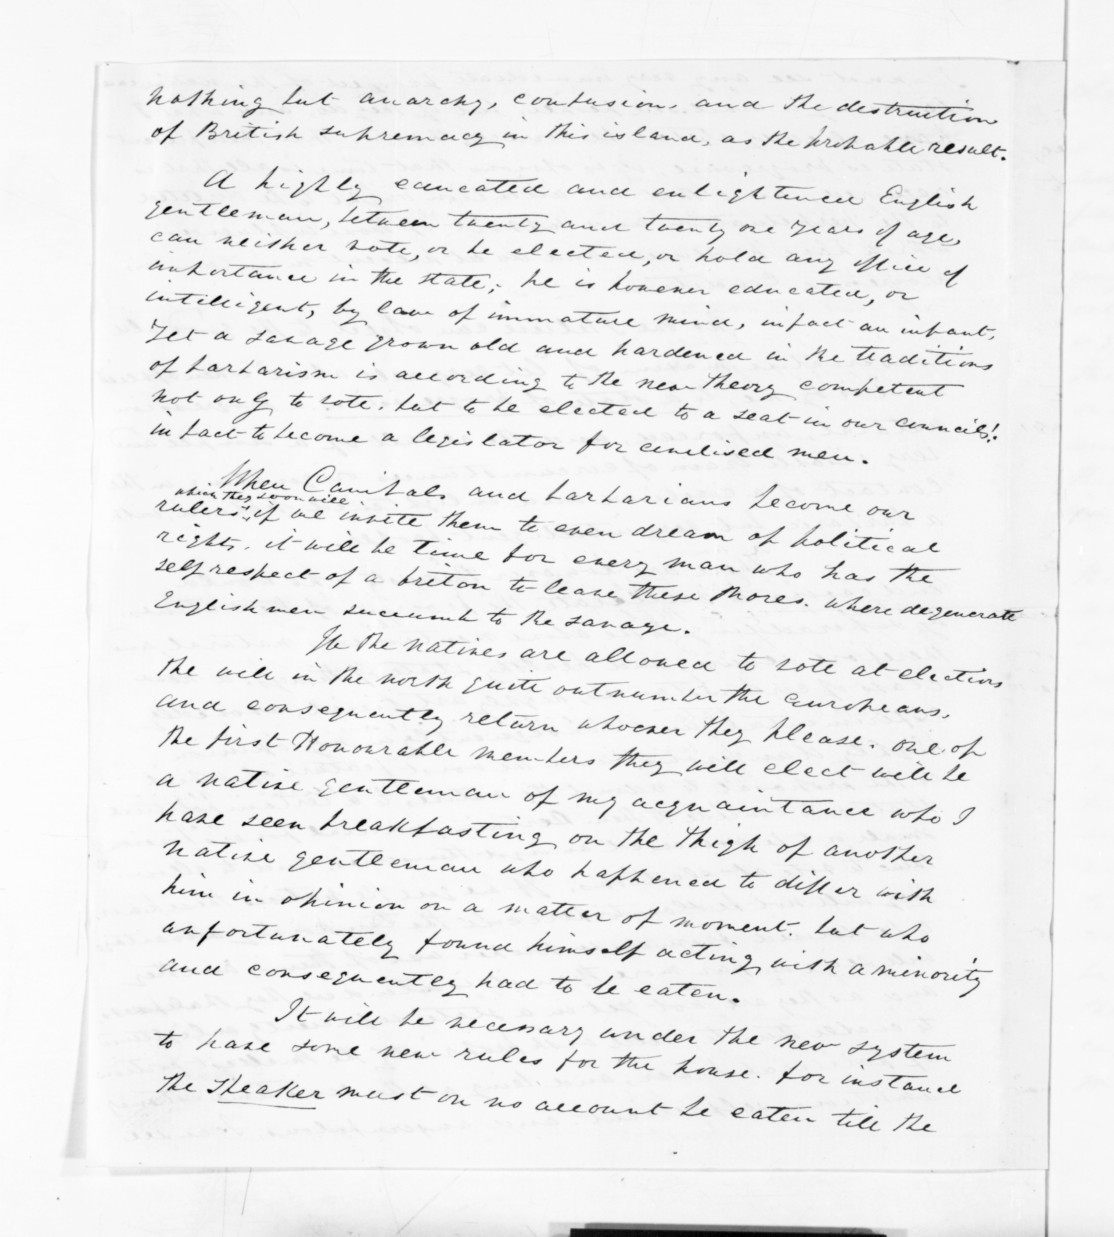 nothing but anarchy, confusion, and the destruction
of British supremacy in this island, as the probable result.
A highly educated and enlightened English
gentleman, between twenty and twenty one years of age,
can neither vote, or be elected, or hold any office of
importance in the state; he is however educated, or
intelligent, by law of immature mind, in fact an infant,
yet a savage grown old and hardened in the traditions
of barbarism is according to the new theory competent
not only to vote, but to be elected to a seat in our councils!
in fact to become a legislator for civilised men.
When Canibals and barbarians become our
which they soon will
rulers, if we invite them to even dream of political
rights, it will be time for every man who has the
self respect of a briton to leave these shores where degenerate
Englishmen succumb to the savage.
If the natives are allowed to vote at elections
the will in the north quite outnumber the Europeans,
and consequently return whoever they please. one of
the first Honourable members they will elect will be
a native gentleman of my acquaintance who I
have seen breakfasting on the thigh of another
native gentleman who happened to differ with
him in opinion on a matter of moment, but who
unfortunately found himself acting with a minority
and consequently had to be eaten.
It will be necessary under the new system
to have some new rules for the house. for instance
the speaker must on no account be eaten till the